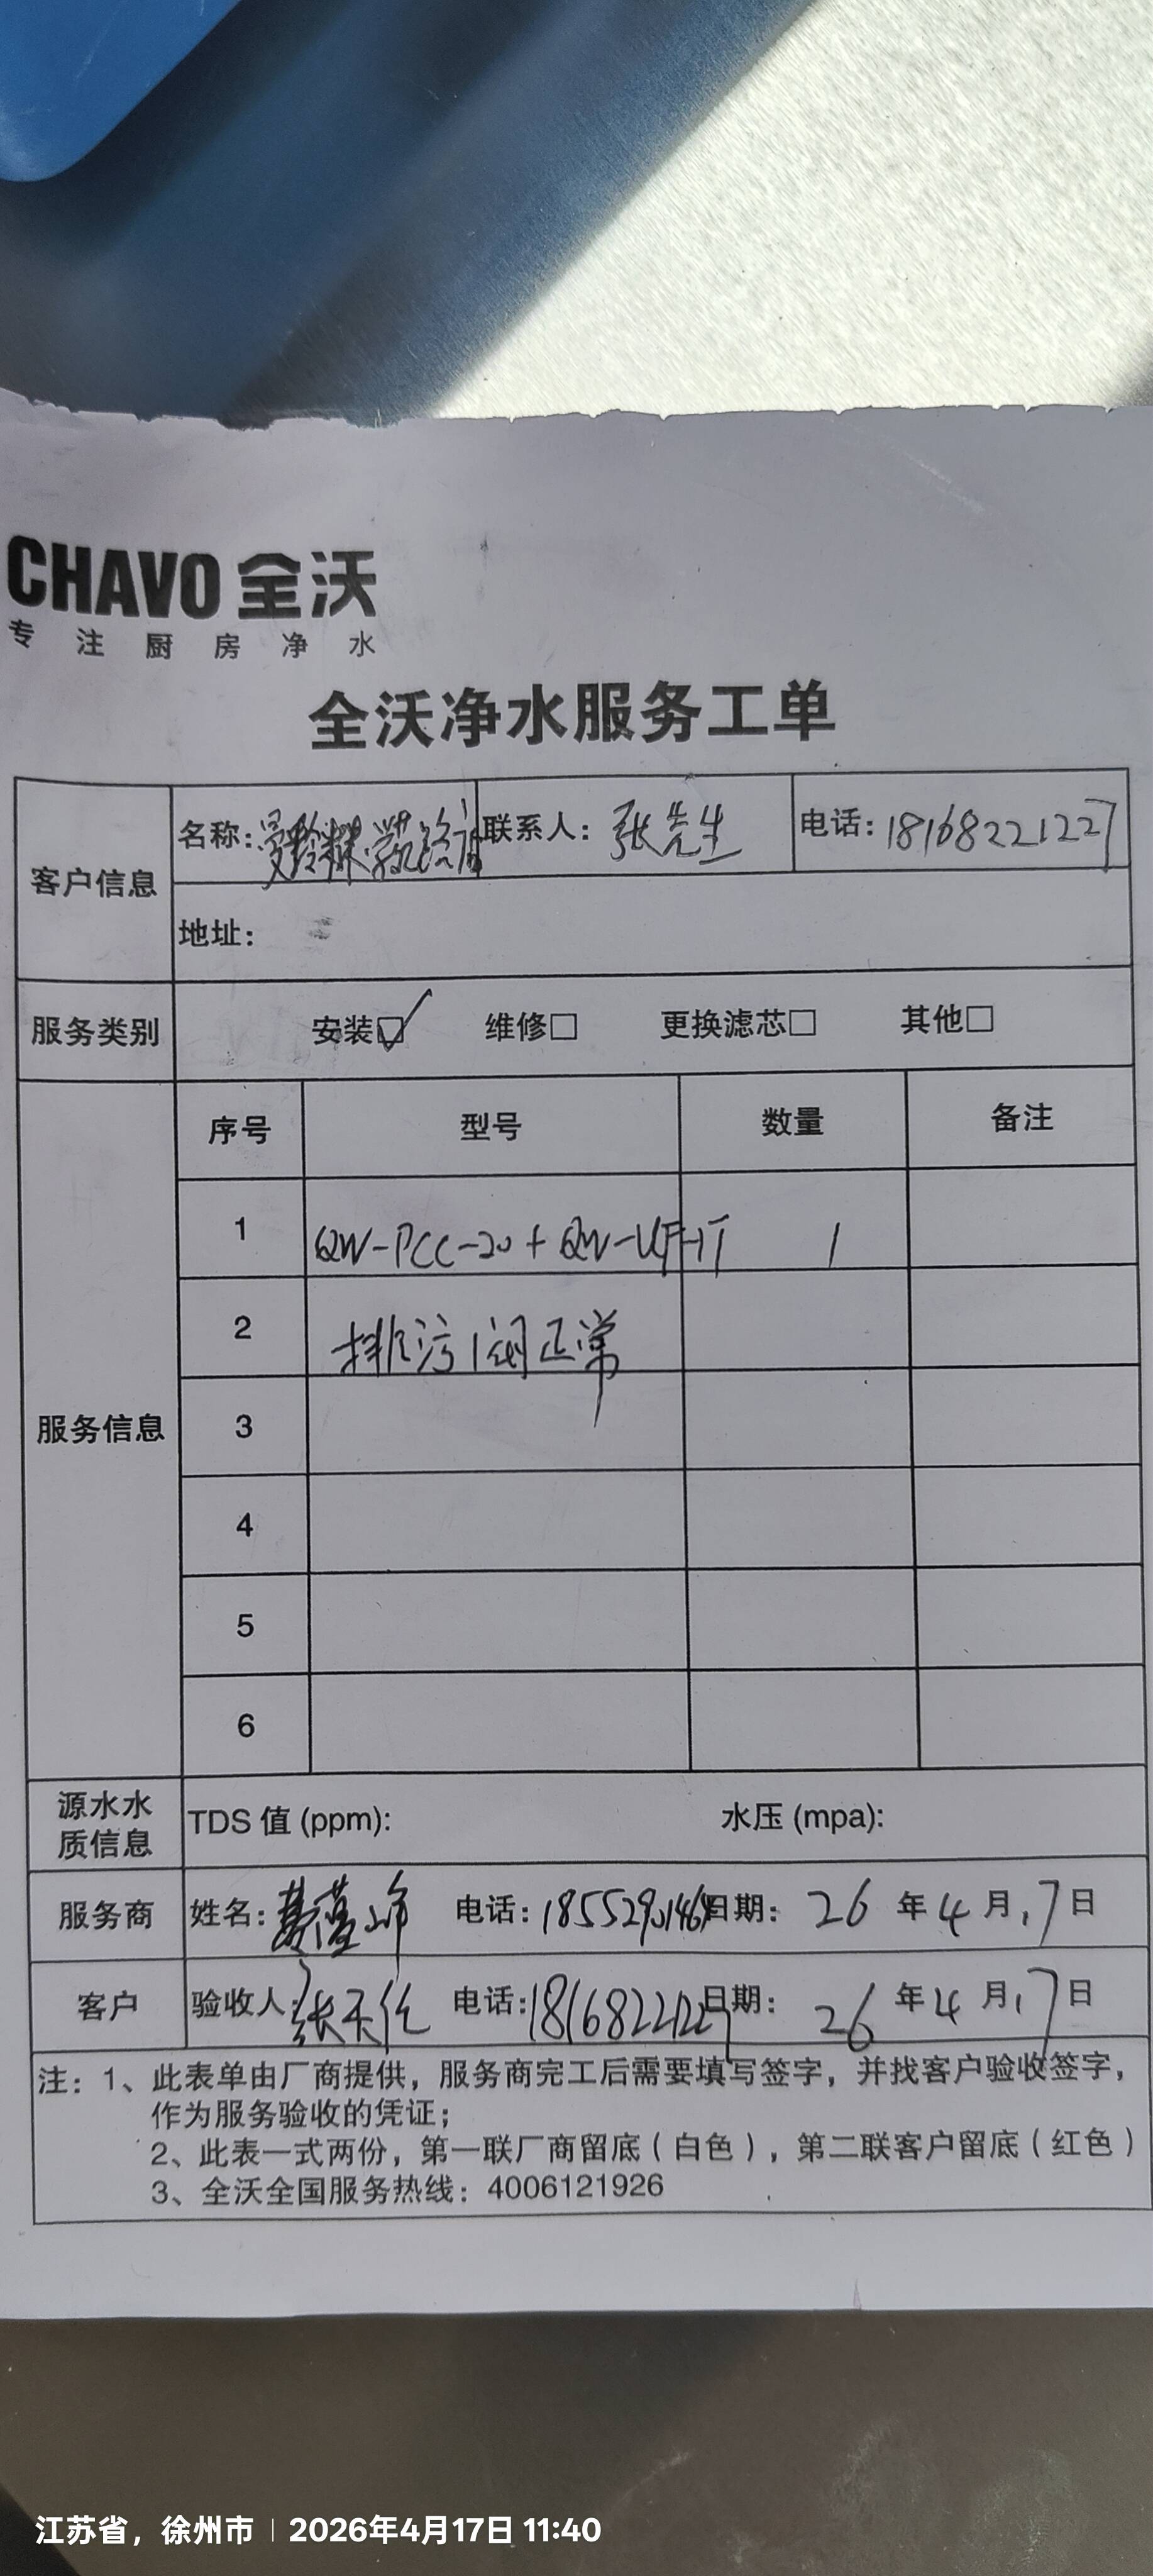 CHAVO 全沃
专注厨房净水
全沃净水服务工单
客户信息
名称: 联系人: 张先生 电话: 18168221227
地址:
服务类别 安装☑ 维修□ 更换滤芯□ 其他□
服务信息
序号 型号 数量 备注
1 QW-PCC-20 + QW-UF-1T 1
2 排污阀正常
3
4
5
6
源水水质信息 TDS 值 (ppm): 水压 (mpa):
服务商 姓名: 电话: 日期: 26 年 4 月 17 日
客户 验收人: 电话: 18168221227 日期: 26 年 4 月 17 日
注: 1、此表单由厂商提供，服务商完工后需要填写签字，并找客户验收签字，
作为服务验收的凭证；
2、此表一式两份，第一联厂商留底（白色），第二联客户留底（红色）
3、全沃全国服务热线：4006121926
江苏省，徐州市 | 2026年4月17日 11:40